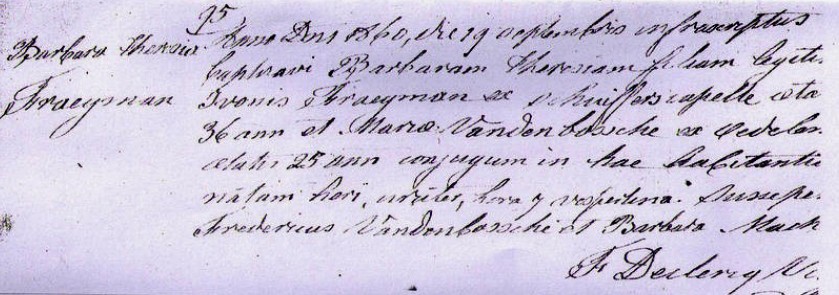 95
Barbara Theresia Anno Dni 1860, die 19 Septembris infrascriptus
baptizavi Barbaram Theresiam filiam legiti
Fraeyman Ivonis Fraeyman ex Schuifferscapelle æta
36 ann et Mariæ Vandenbossche ex Oedelem
ætatis 25 ann conjugum in hac habitanti
natam heri, hora 7 vespertina. Suscepe
Fredericus Vandenbossche et Barbara Mach
F Declercq